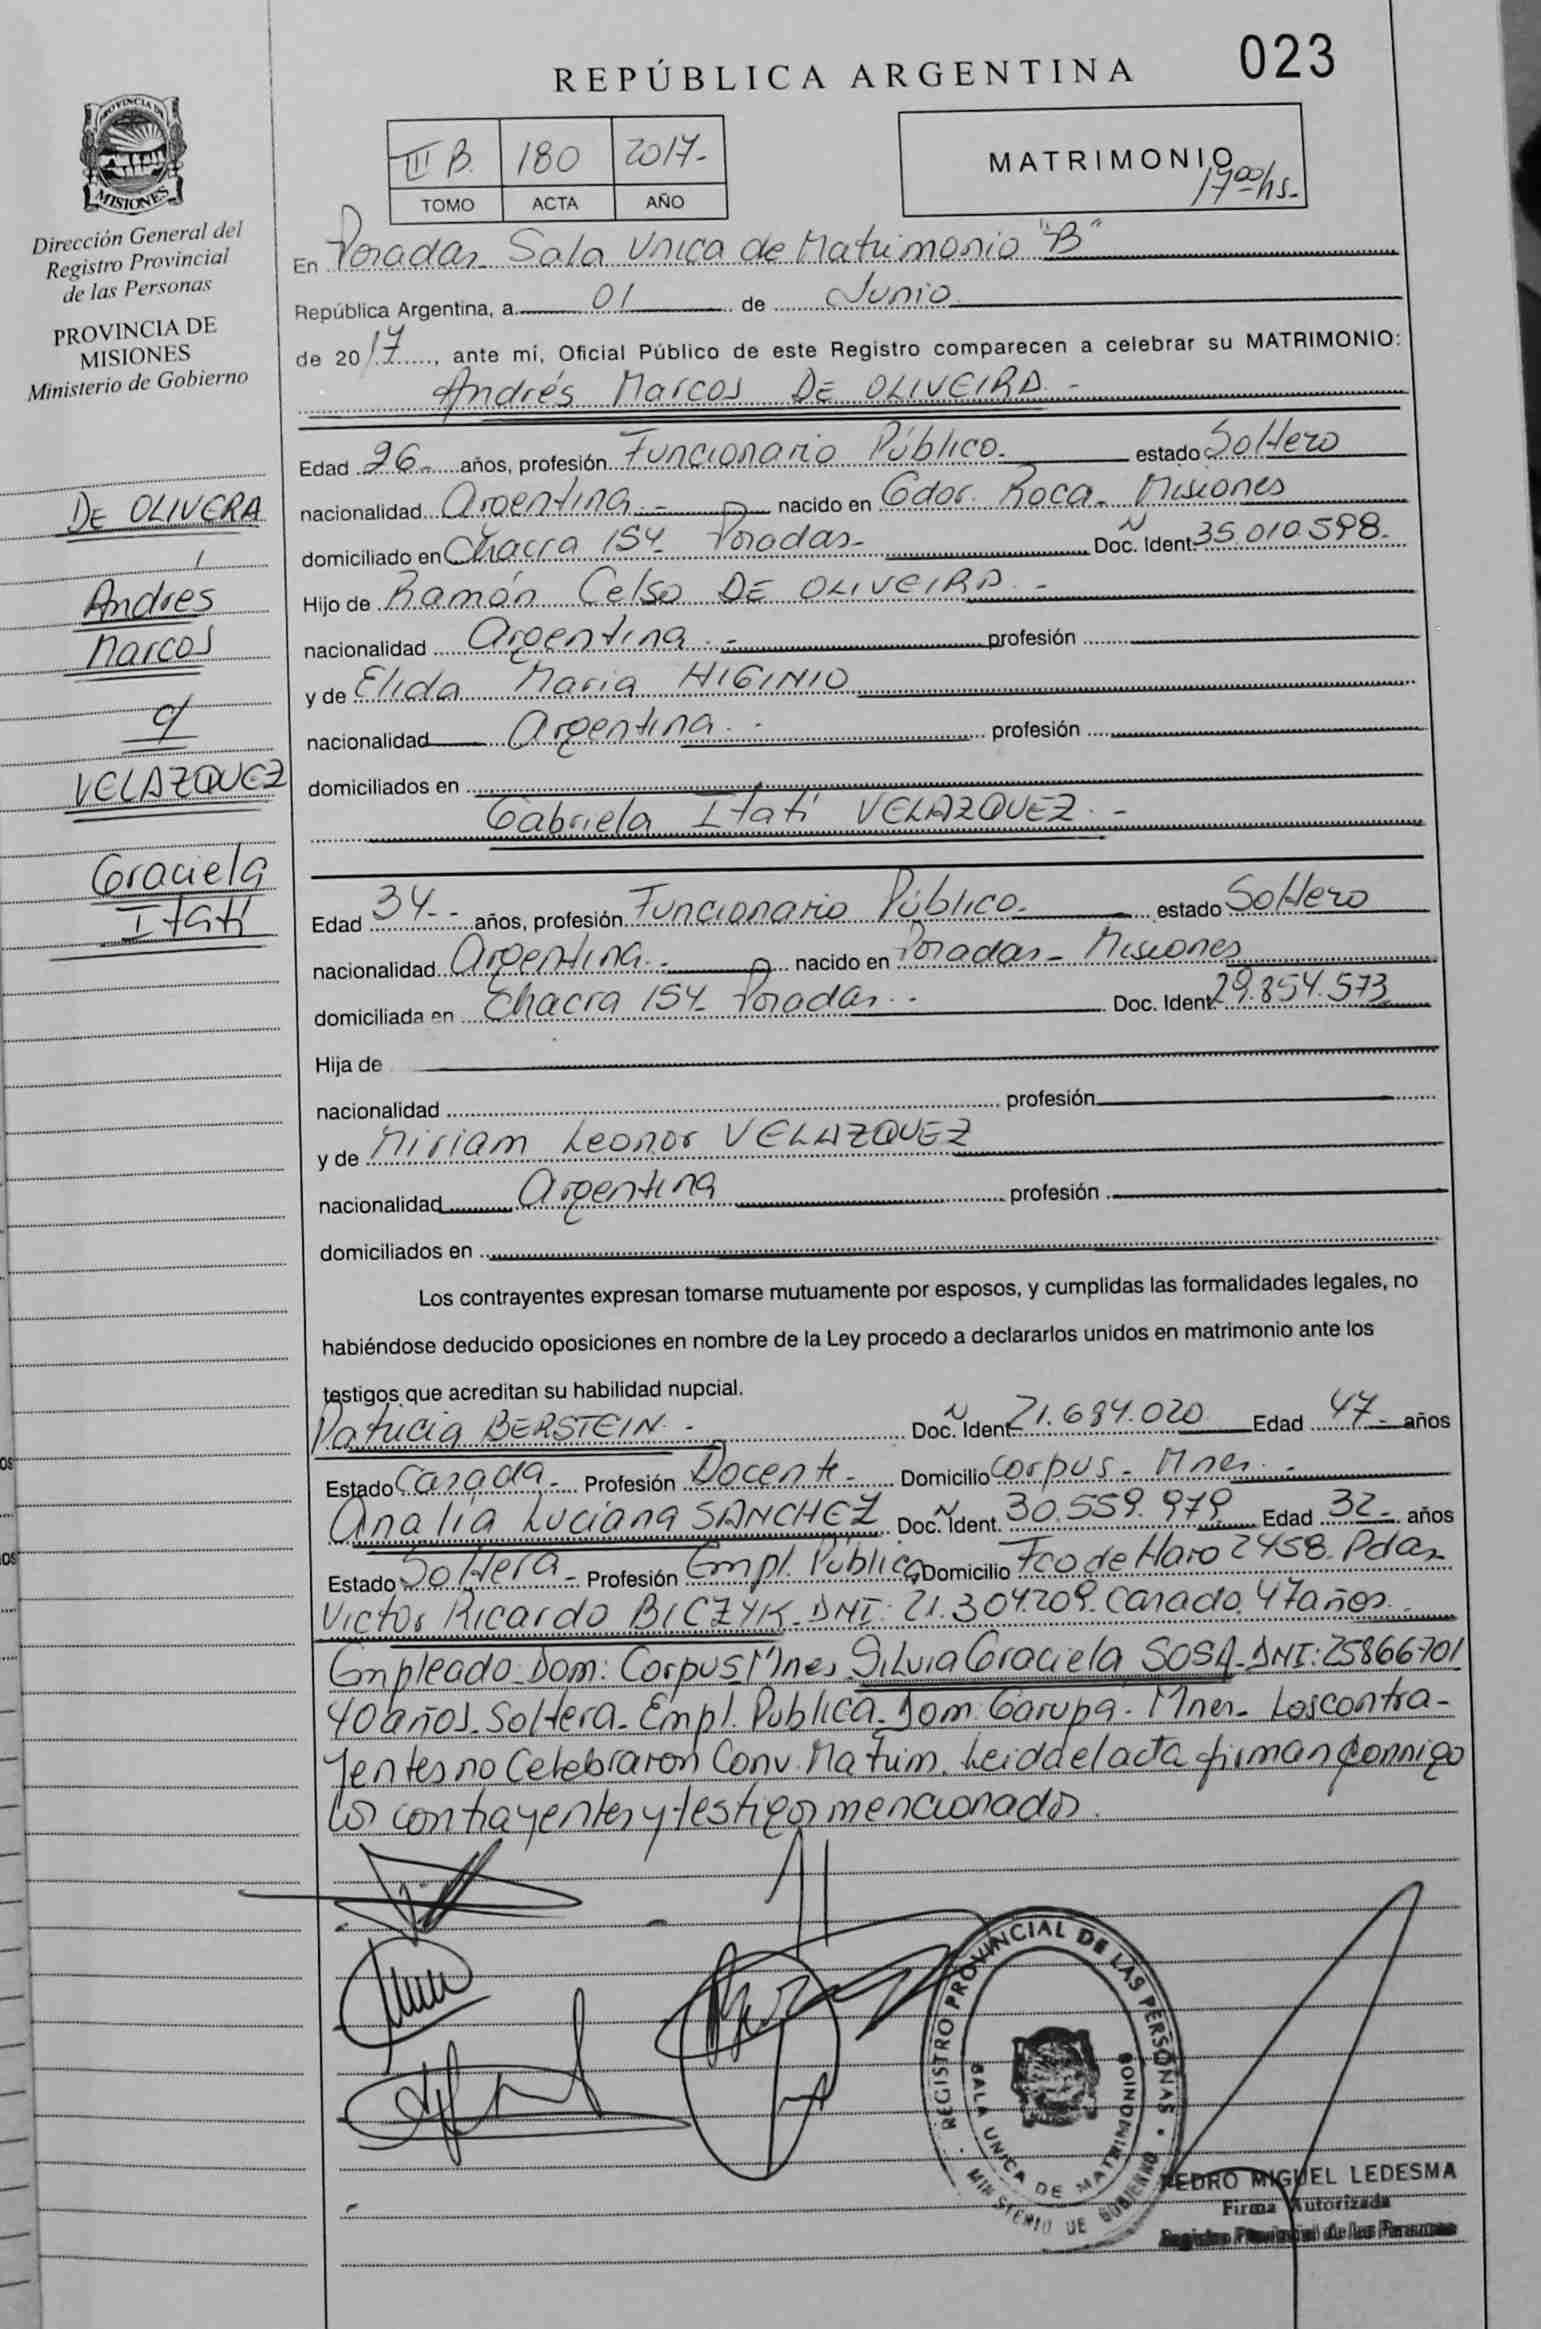 023
REPÚBLICA ARGENTINA
PROVINCIA DE
MISIONES
Dirección General del
Registro Provincial
de las Personas
PROVINCIA DE
MISIONES
Ministerio de Gobierno
III B. 180 2017-
TOMO ACTA AÑO
MATRIMONIO
17 00 hs.-
En Posadas Sala Unica de Matrimonio "B"
República Argentina, a 01 de Junio
de 2017, ante mí, Oficial Público de este Registro comparecen a celebrar su MATRIMONIO:
Andrés Marcos DE OLIVEIRA.-
Edad 26- años, profesión Funcionario Público. estado Soltero
nacionalidad Argentina.- nacido en Gdor. Roca- Misiones
domiciliado en Chacra 154- Posadas- Doc. Ident. N 35.010.598.
Hijo de Ramón Celso DE OLIVEIRA.-
nacionalidad Argentina.- profesión
y de Elida Maria HIGINIO
nacionalidad Argentina.- profesión
domiciliados en
Gabriela Itatí VELAZQUEZ.-
Edad 34-- años, profesión Funcionario Público. estado Soltero
nacionalidad Argentina.- nacido en Posadas- Misiones
domiciliada en Chacra 154- Posadas.- Doc. Ident. 29.854.573
Hija de
nacionalidad profesión
y de Miriam Leonor VELAZQUEZ
nacionalidad Argentina profesión
domiciliados en
Los contrayentes expresan tomarse mutuamente por esposos, y cumplidas las formalidades legales, no
habiéndose deducido oposiciones en nombre de la Ley procedo a declararlos unidos en matrimonio ante los
testigos que acreditan su habilidad nupcial.
Patricia BERSTEIN.- Doc. Ident. N 21.684.020 Edad 47- años
Estado Casada- Profesión Docente- Domicilio Corpus- Mnes.-
Analía Luciana SANCHEZ Doc. Ident. N 30.559.979 Edad 32- años
Estado Soltera- Profesión Empl. Pública Domicilio Fco de Haro 2458. Pdas-
Victor Ricardo BICZYK- DNI: 21.304.209. Casado. 47 años.
Empleado- Dom: Corpus Mnes Silvia Graciela SOSA- DNI: 25866701
40 años- Soltera- Empl. Publica- Dom: Garupa- Mnes- Los contra-
yentes no Celebraron Conv. Matrim. Leida el acta firman conmigo
los contrayentes y testigos mencionados.
DE OLIVERA
Andres
Marcos
c/
VELAZQUEZ
Graciela
Itatí
REGISTRO PROVINCIAL DE LAS PERSONAS
SALA UNICA DE MATRIMONIOS
MINISTERIO DE GOBIERNO
PEDRO MIGUEL LEDESMA
Firma Autorizada
Registro Provincial de las Personas